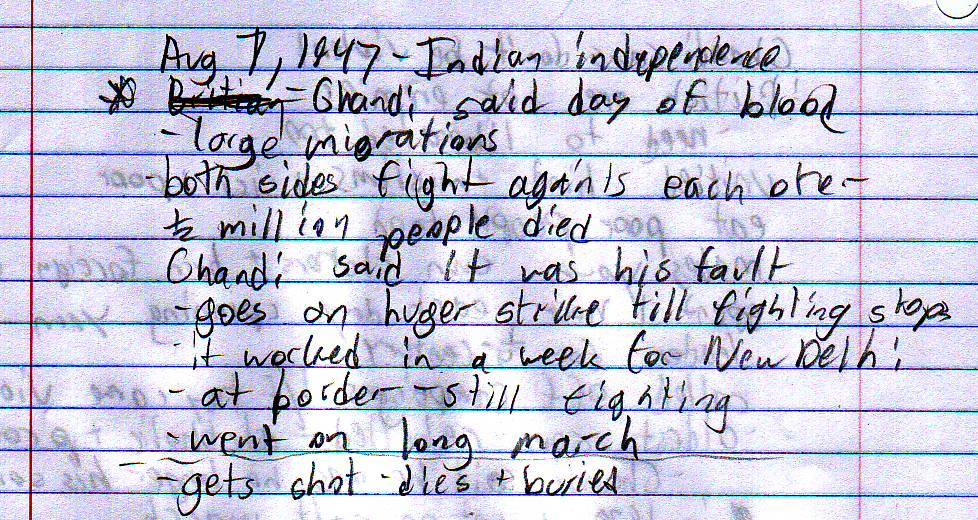 Aug 7, 1947 - Indian independence
- Ghandi said day of blood
- large migrations
- both sides fight againts each other
½ million people died
Ghandi said it was his fault
- goes on huger strike till fighting stops
- it worked in a week for New Delhi
- at border - still fighting
- went on long march
- gets shot - dies + buried